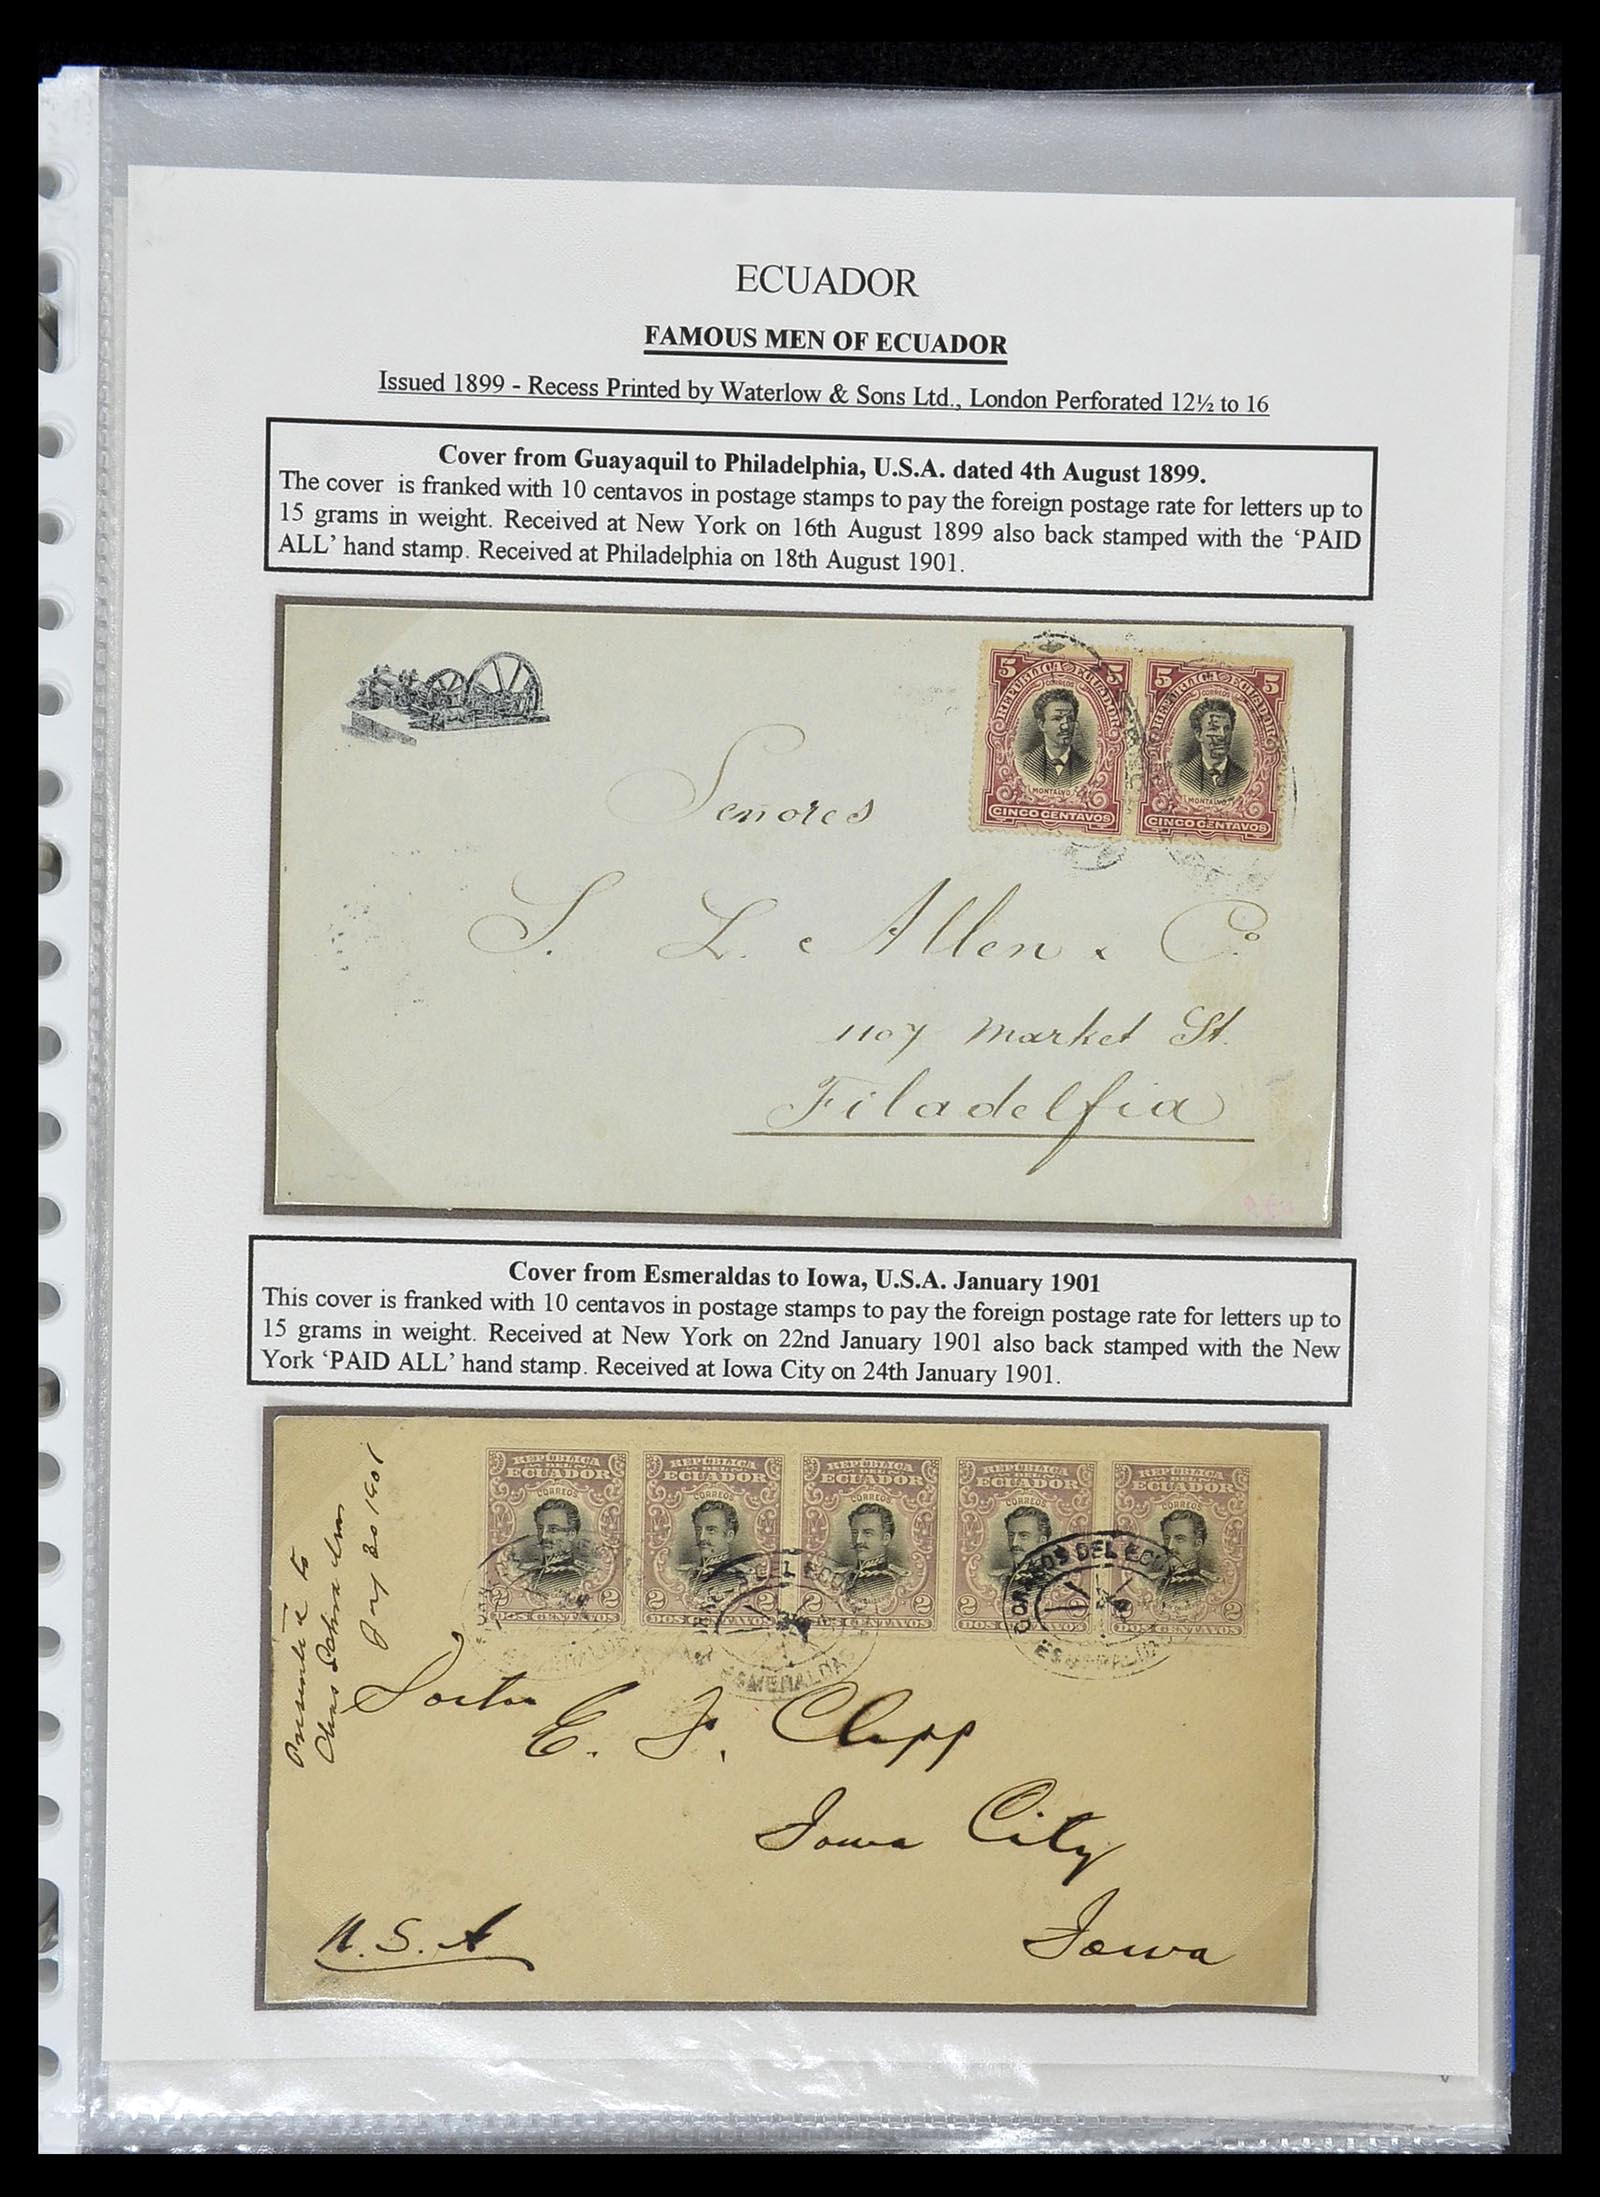 ECUADOR
FAMOUS MEN OF ECUADOR
Issued 1899 - Recess Printed by Waterlow & Sons Ltd., London Perforated 12½ to 16
Cover from Guayaquil to Philadelphia, U.S.A. dated 4th August 1899.
The cover is franked with 10 centavos in postage stamps to pay the foreign postage rate for letters up to
15 grams in weight. Received at New York on 16th August 1899 also back stamped with the ‘PAID
ALL’ hand stamp. Received at Philadelphia on 18th August 1901.
5 REPUBLICA ECUADOR 5
CORREOS
MONTALVO
CINCO CENTAVOS
5 REPUBLICA ECUADOR 5
CORREOS
MONTALVO
CINCO CENTAVOS
Señores
S. L. Allen & Co
1107 Market St.
Filadelfia
Cover from Esmeraldas to Iowa, U.S.A. January 1901
This cover is franked with 10 centavos in postage stamps to pay the foreign postage rate for letters up to
15 grams in weight. Received at New York on 22nd January 1901 also back stamped with the New
York ‘PAID ALL’ hand stamp. Received at Iowa City on 24th January 1901.
REPÚBLICA
DEL
ECUADOR
CORREOS
2 2
DOS CENTAVOS
REPÚBLICA
DEL
ECUADOR
CORREOS
2 2
DOS CENTAVOS
REPÚBLICA
DEL
ECUADOR
CORREOS
2
CENTAVOS
REPÚBLICA
DEL
ECUADOR
CORREOS
2 2
DOS CENTAVOS
REPÚBLICA
DEL
ECUADOR
CORREOS
2 2
DOS CENTAVOS
CORREOS DEL
ESMERALDAS
to
Chas
1901
E. F. Clapp
Iowa City
Iowa
U.S.A